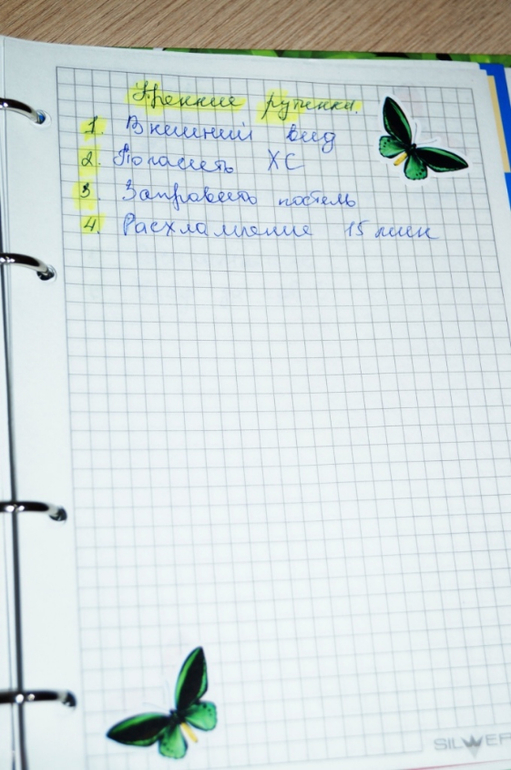 Утренние рутинки.
1. Внешний вид
2. Погасить ХС
3. Заправить постель
4. Расхламление 15 мин
SILWER